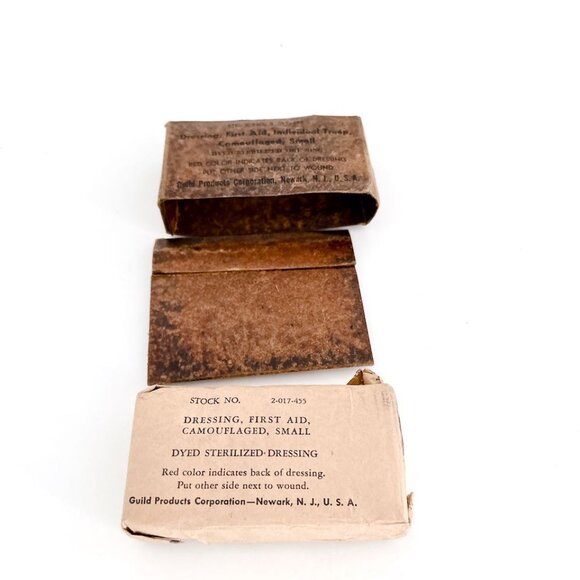 Dressing, First Aid, Individual Troop,
Camouflaged, Small
DYED STERILIZED
RED COLOR INDICATES BACK OF DRESSING
PUT OTHER SIDE NEXT TO WOUND
Guild Products Corporation, Newark, N. J., U. S. A.
STOCK NO. 2-017-455
DRESSING, FIRST AID,
CAMOUFLAGED, SMALL
DYED STERILIZED DRESSING
Red color indicates back of dressing.
Put other side next to wound.
Guild Products Corporation—Newark, N. J., U. S. A.